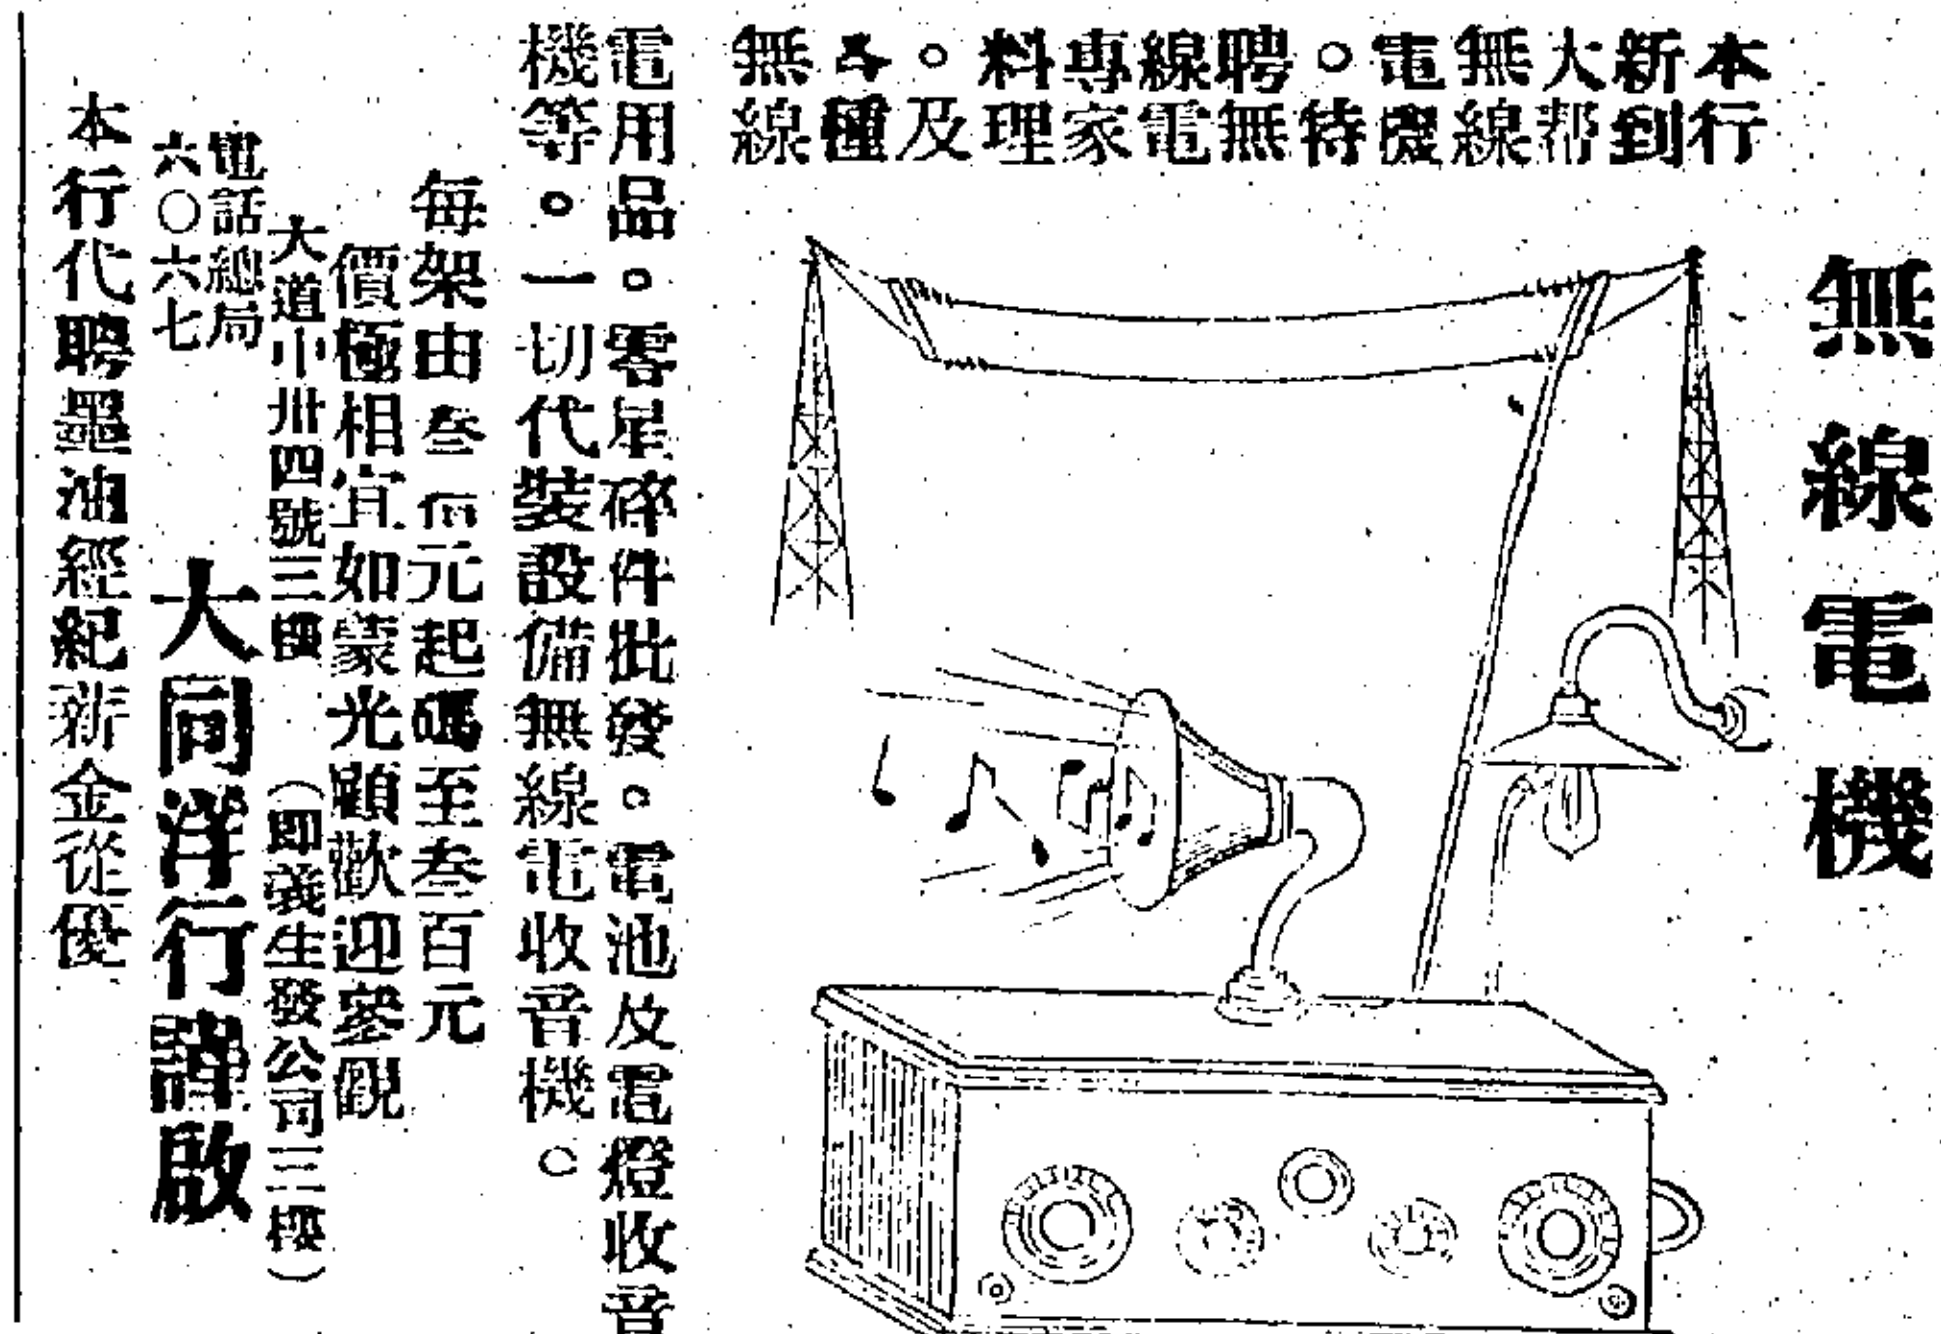 無線電機
本行
新到
大帮
無線
電機
。特
聘無
線電
專家
料理
。及
各種
無線
電用品。零星碎件批發。電池及電燈收音
機等。一切代裝設備無線電收音機。
每架由叁元起碼至叁百元
價極相宜如蒙光顧歡迎參觀
大道中卅四號三樓（即義生發公司三樓）
電話總局
六〇六七
大同洋行謹啟
本行代聘墨油經紀薪金從優